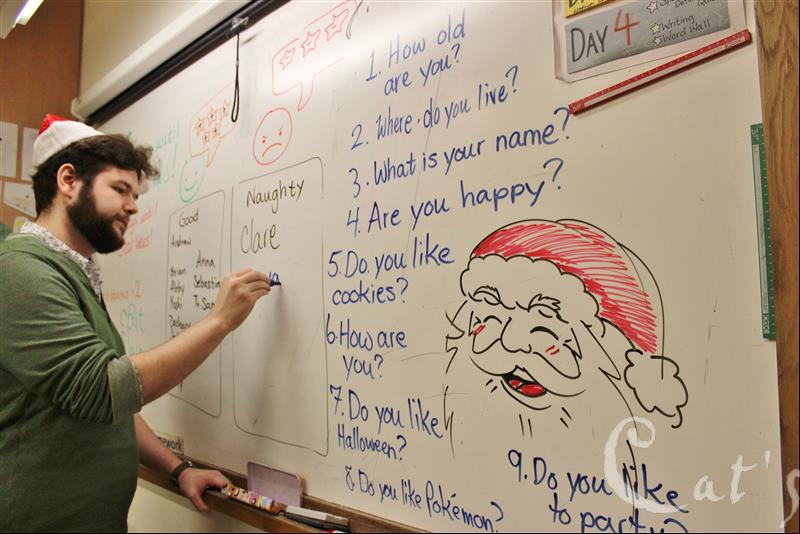 DAY 4
Writing
Word Wall
1. How old
are you?
2. Where do you live?
3. What is your name?
4. Are you happy?
5. Do you like
cookies?
6. How are
you?
7. Do you like
Halloween?
8. Do you like Pokémon?
9. Do you like
to party?
until
Good
Andrew
Brian
Abby
Yoshi
Anna
Sebastia
Naughty
Clare
Cat's